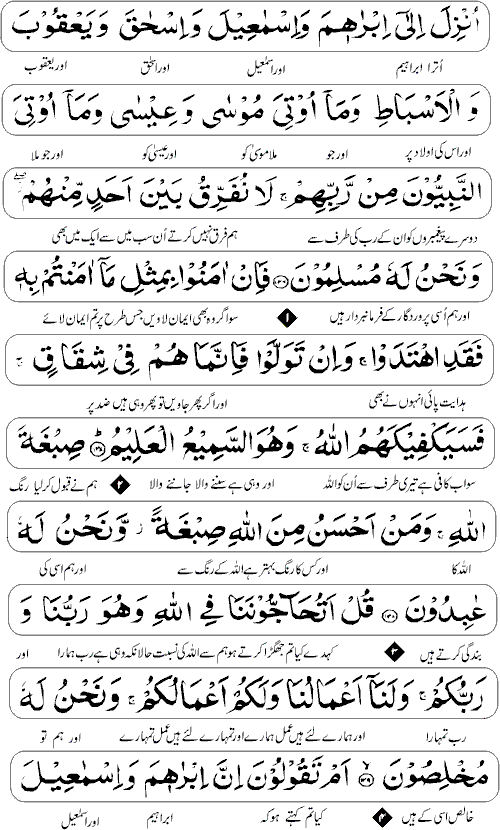 اُنْزِلَ اِلٰٓى اِبْرٰهٖمَ وَاِسْمٰعِيْلَ وَاِسْحٰقَ وَيَعْقُوْبَ
اُترا ابراہیم اور اسمٰعیل اور اسحٰق اور یعقوب
وَالْاَسْبَاطِ وَمَآ اُوْتِىَ مُوْسٰى وَعِيْسٰى وَمَآ اُوْتِىَ
اور اس کی اولاد پر اور جو ملا موسیٰ کو اور عیسیٰ کو اور جو ملا
النَّبِيُّوْنَ مِنْ رَّبِّهِمْ ۚ لَا نُفَرِّقُ بَيْنَ اَحَدٍ مِّنْهُمْ
دوسرے پیغمبروں کو ان کے رب کی طرف سے ہم فرق نہیں کرتے اُن سب میں سے ایک میں بھی
وَنَحْنُ لَهٗ مُسْلِمُوْنَ ۝ فَاِنْ اٰمَنُوْا بِمِثْلِ مَآ اٰمَنْتُمْ بِهٖ
اور ہم اُسی پروردگار کے فرمانبردار ہیں ۱ سو اگر وہ بھی ایمان لاویں جس طرح پر تم ایمان لائے
فَقَدِ اهْتَدَوْا ۚ وَاِنْ تَوَلَّوْا فَاِنَّمَا هُمْ فِىْ شِقَاقٍ ۚ
ہدایت پائی انہوں نے بھی اور اگر پھر جاویں تو پھر وہی ہیں ضد پر
فَسَيَكْفِيْكَهُمُ اللهُ ۚ وَهُوَ السَّمِيْعُ الْعَلِيْمُ ۝ صِبْغَةَ
سو اب کافی ہے تیری طرف سے اُن کو اللہ اور وہی ہے سننے والا جاننے والا ۲ ہم نے قبول کر لیا رنگ
اللهِ ۚ وَمَنْ اَحْسَنُ مِنَ اللهِ صِبْغَةً ۡ وَّنَحْنُ لَهٗ
اللہ کا اور کس کا رنگ بہتر ہے اللہ کے رنگ سے اور ہم اسی کی
عٰبِدُوْنَ ۝ قُلْ اَتُحَآجُّوْنَنَا فِى اللهِ وَهُوَ رَبُّنَا وَ
بندگی کرتے ہیں ۳ کہدے کیا تم جھگڑا کرتے ہو ہم سے اللہ کی نسبت حالانکہ وہی ہے رب ہمارا اور
رَبُّكُمْ ۚ وَلَنَآ اَعْمَالُنَا وَلَكُمْ اَعْمَالُكُمْ ۚ وَنَحْنُ لَهٗ
رب تمہارا اور ہمارے لئے ہیں عمل ہمارے اور تمہارے لئے ہیں عمل تمہارے اور ہم تو
مُخْلِصُوْنَ ۝ اَمْ تَقُوْلُوْنَ اِنَّ اِبْرٰهٖمَ وَاِسْمٰعِيْلَ
خالص اسی کے ہیں ۴ کیا تم کہتے ہو کہ ابراہیم اور اسمٰعیل